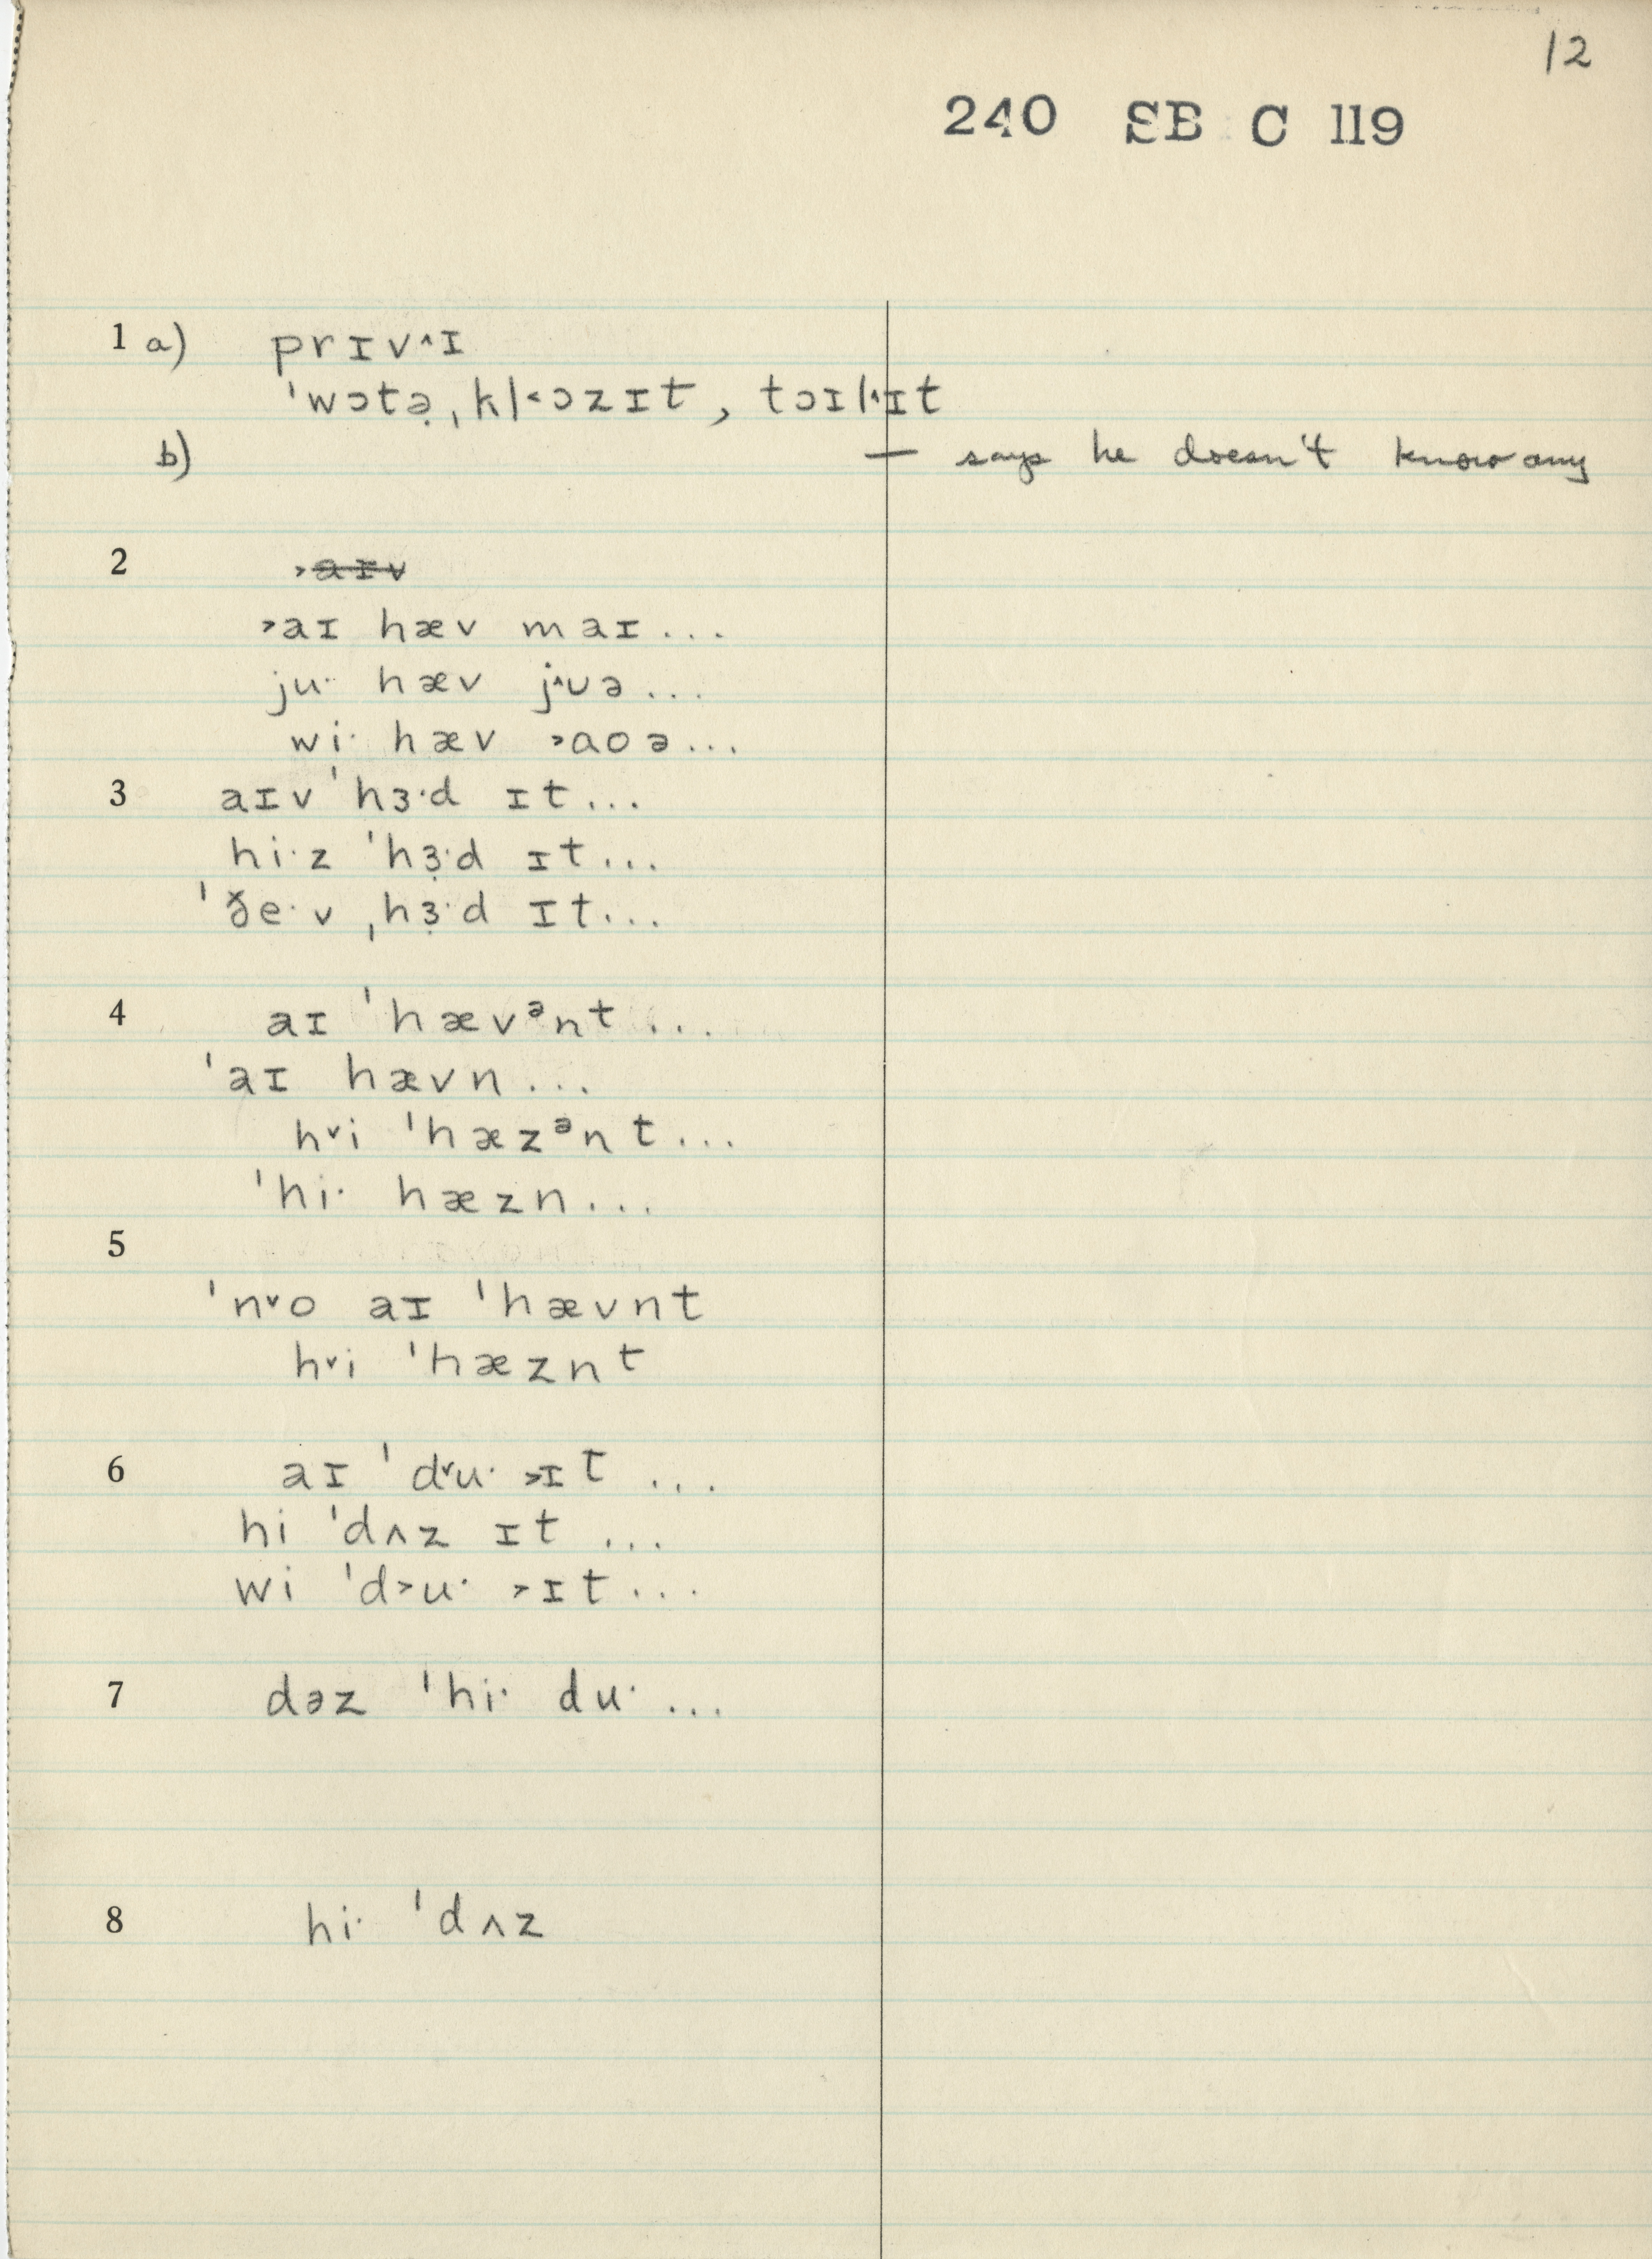 12
240 SB C 119
1 a) prɪv˄ɪ
ˈwɔtə̣ˌkl˂ɔzɪt, tɔɪl˄ɪt
b) — says he doesn't know any
2 ˃aɪv
˃aɪ hæv maɪ...
ju· hæv j˄ʊə...
wi· hæv ˃aoə...
3 aɪv ˈhɜ·d ɪt...
hi·z ˈhɜ̣·d ɪt...
ˈðe·v ˌhɜ̣·d ɪt...
4 aɪ ˈhævᵊnt...
ˈaɪ hævn...
h˅i ˈhæzᵊnt...
ˈhi· hæzn...
5
ˈn˅o aɪ ˈhævnt
h˅i ˈhæznt
6 aɪ ˈd˅u· ˃ɪt ...
hi ˈdʌz ɪt ...
wi ˈd˃u· ˃ɪt...
7 dəz ˈhi· du· ...
8 hi· ˈdʌz